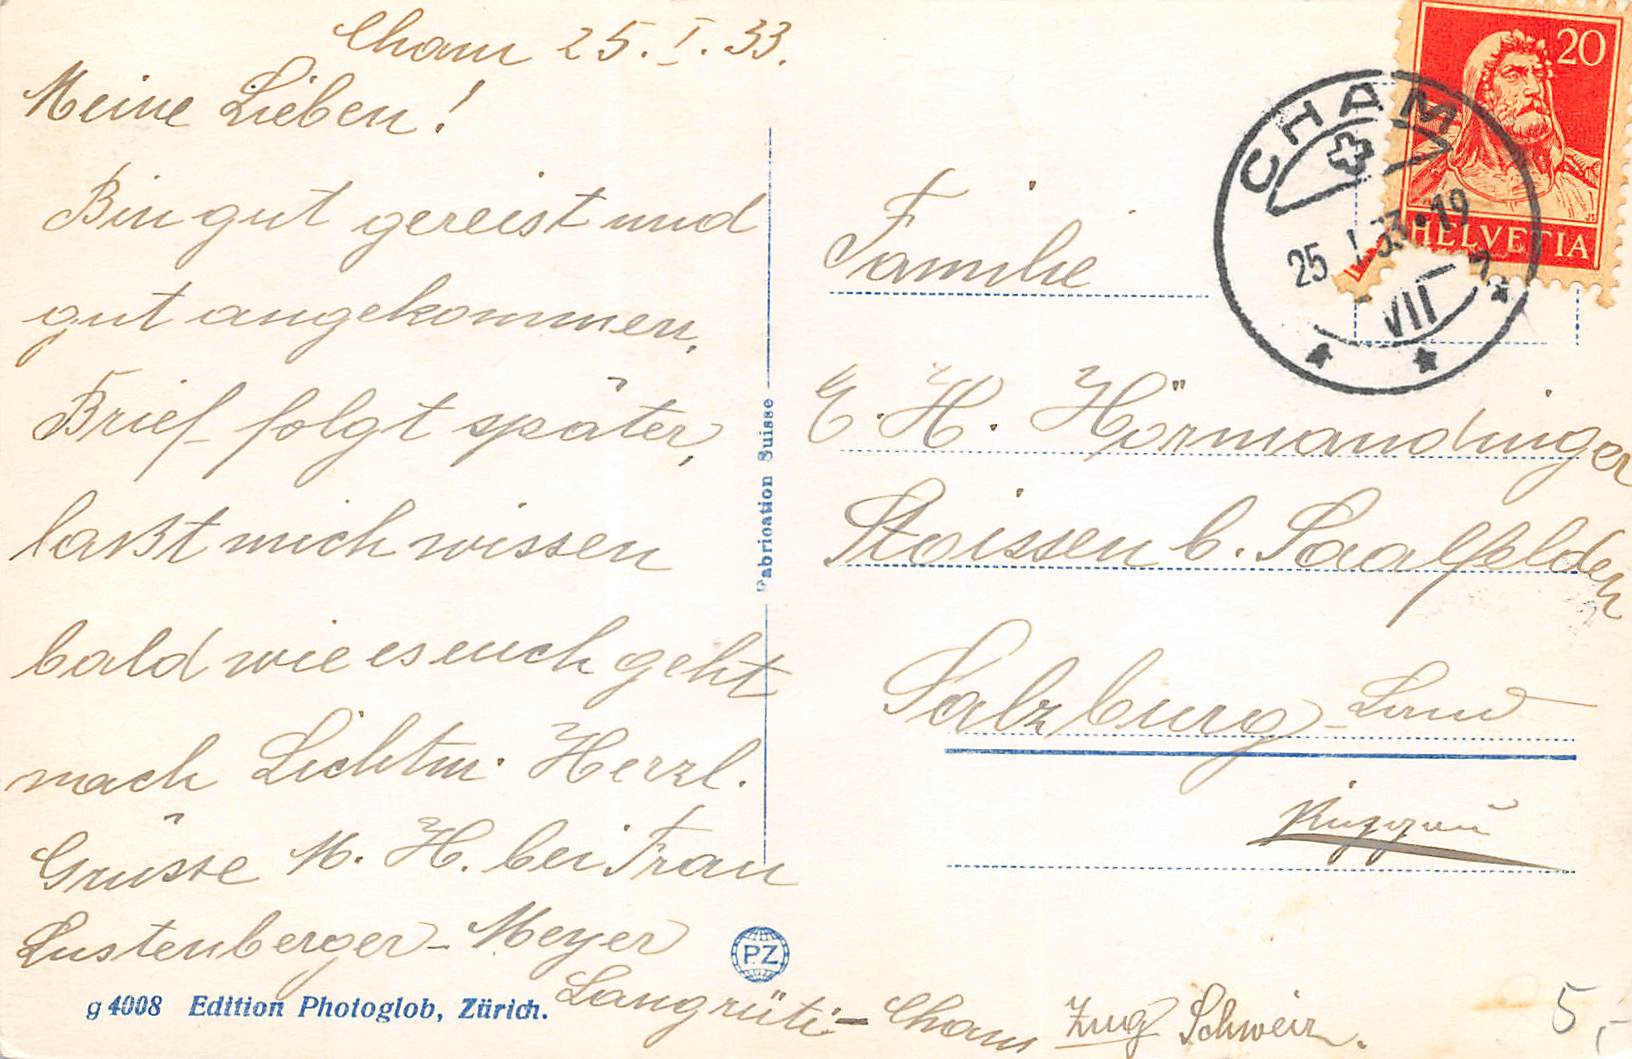 Cham 25. I. 33.
Meine Lieben!
Bin gut gereist und
gut angekommen.
Brief folgt später,
laßt mich wissen
bald wie es euch geht
nach Lichtm. Herzl.
Grüsse M. H. bei Frau
Lustenberger-Meyer
Langrüti-Cham Zug Schweiz.
g 4008 Edition Photoglob, Zürich.
Fabrication Suisse
PZ
20
HELVETIA
CHAM
25. I. 33. 19
VII
Familie
E. H. Hörmandinger
Stoissen b. Saalfelden
Salzburg-Land
5,-